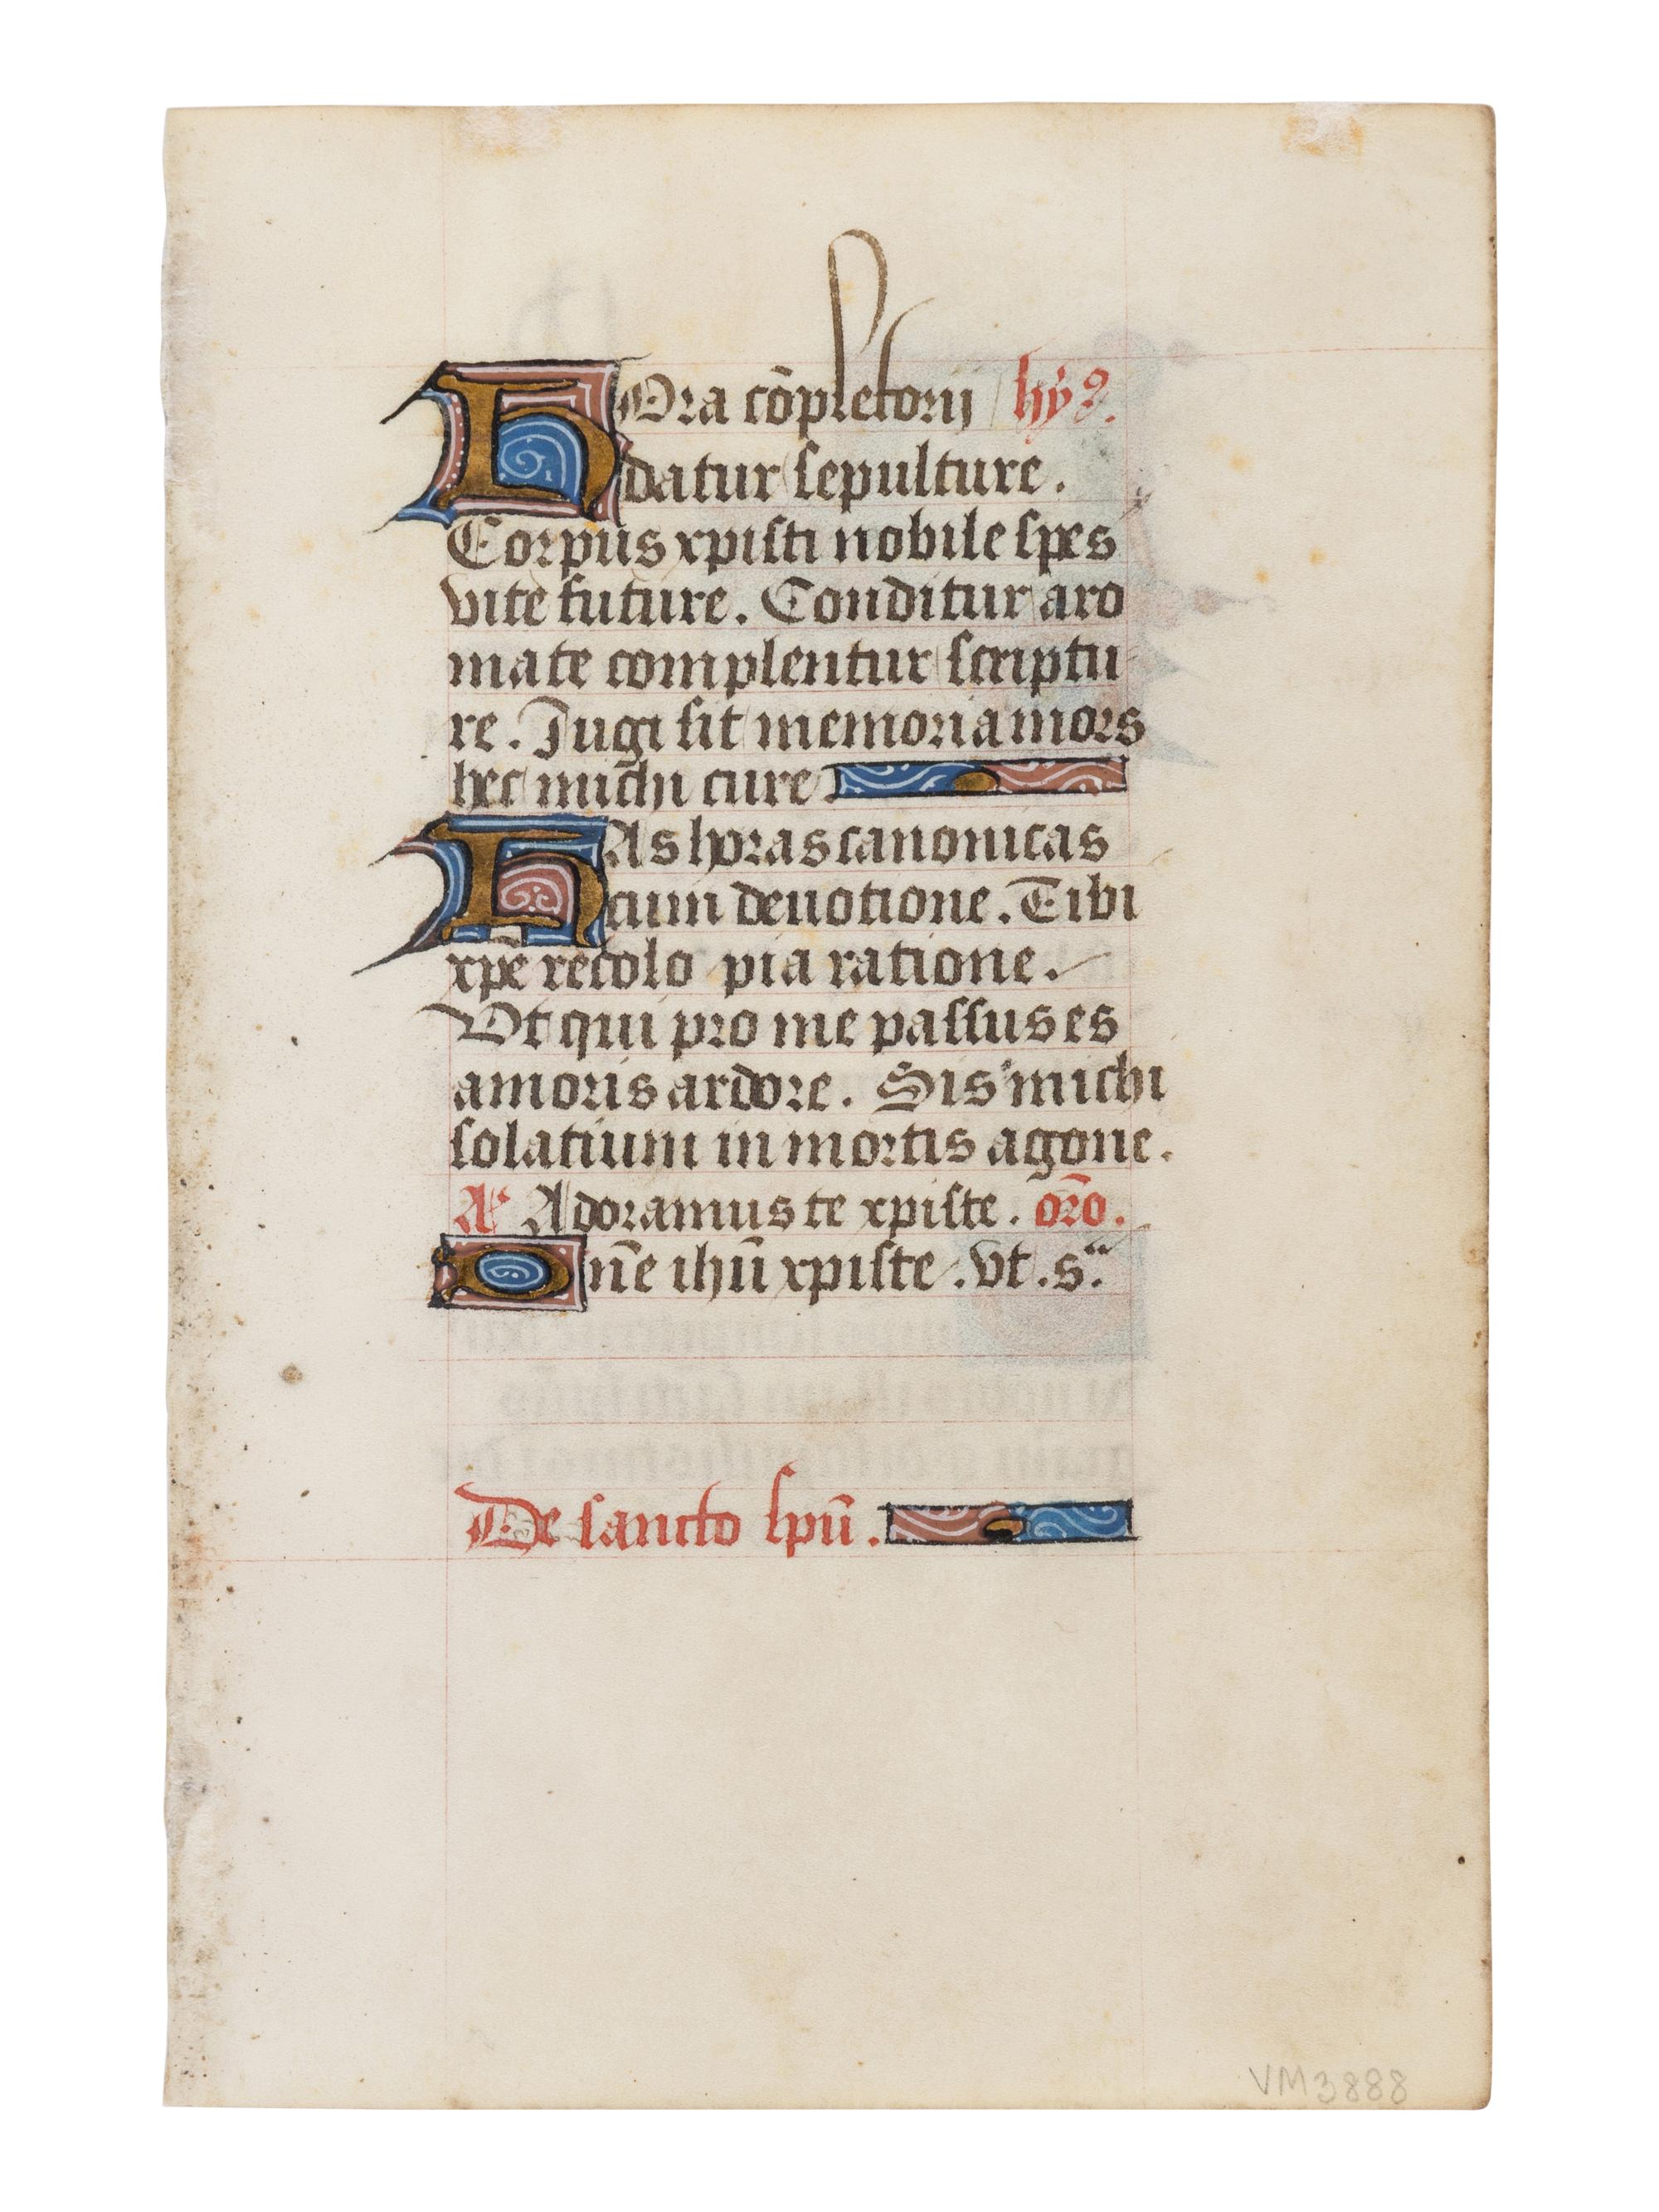 HOra cōpletorij hỹ9.
datur sepulture.
Corpus xpisti nobile spes
vite future. Conditur aro
mate complentur scriptu
re. Jugi sit memoria mors
hec michi cure.
HAs horas canonicas
cum deuotione. Tibi
xpē recolo pia ratione.
Vt qui pro me passus es
amoris ardore. Sis michi
solatium in mortis agone.
A Adoramus te xpiste. oro.
Dn̄e ihū xpiste. vt. s.
De sancto spū.
VM3888